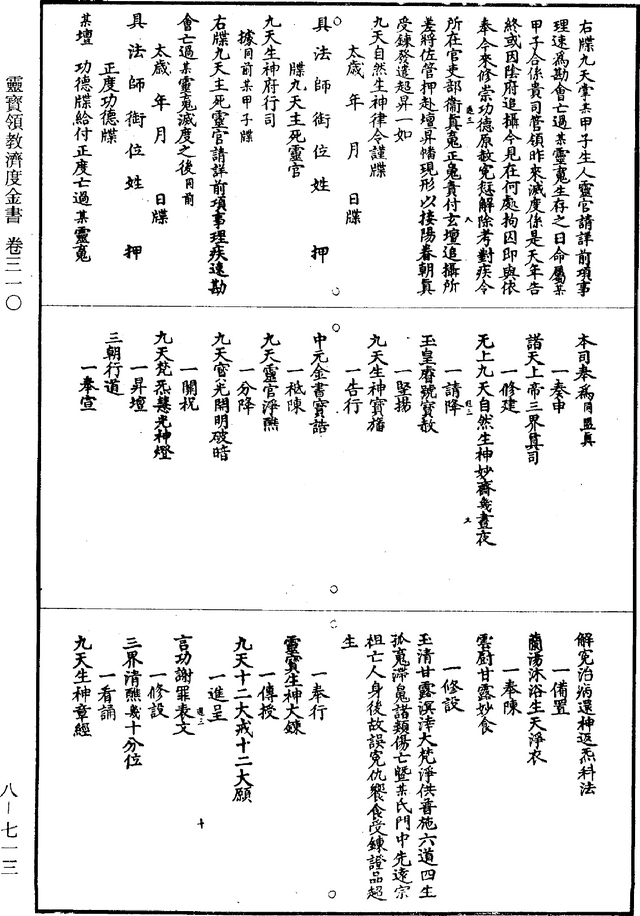 右牒九天掌某甲子生人靈官請詳前項事
理速為勘會亡過某靈䰟生存之日命屬某
甲子合係貴司管領昨來滅度係是天年告
終或因陰府追攝今見在何處拘囚即與依
奉今來修崇功德原赦寃愆解除考對疾令
所在官吏部衛真䰟正䰟賫付玄壇追攝所
差將佐管押赴壇昇旛現形以接陽眷朝真
受鍊發遣超昇一如
九天自然生神律令謹牒
太歲年月日牒
具法師銜位姓押
牒九天主死靈官
九天生神府行司
據同前某甲子牒
右牒九天主死靈官請詳前項事理疾速勘
會亡過某靈䰟滅度之後同前
太歲年月日牒
具法師銜位姓押
正度功德牒
某壇功德牒給付正度亡過某靈䰟
本司奉為同盟真
一奏申
諸天上帝三界真司
一修建
无上九天自然生神妙齋幾晝夜
一請降
玉皇尊號寶赦
一堅揚
九天生神寶旛
一告行
中元金書寶誥
一祗陳
九天靈官淨醮
一分降
九天官光開明破暗
一關祝
九天梵炁慧光神燈
一昇壇
三朝行道
一奉宣
解寃治病還神返炁科法
一備置
蘭湯沐浴生天淨衣
一奉陳
雲厨甘露妙食
一修設
玉清甘露溟涬大梵淨供普施六道四生
孤䰟滯鬼諸類傷亡暨某氏門中先遠宗
祖亡人身後故誤寃仇饗食受鍊證品超
生
一奉行
靈寶生神大鍊
一傳授
九天十二大戒十二大願
一進呈
言功謝罪表文
一修設
三界清醮幾十分位
一看誦
九天生神章經
靈寶領教濟度金書 卷三一〇
八-七一三